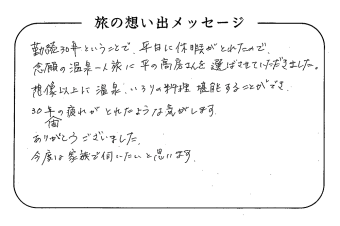 旅の想い出メッセージ
勤続30年ということで、平日に休暇がとれたので、
念願の温泉一人旅に平の高房さんを選ばさせていただきました。
想像以上に温泉、いろりの料理 堪能することができ、
30年の疲れがとれたような気がします。
ありがとうございました。
今度は家族で伺いたいと思います。